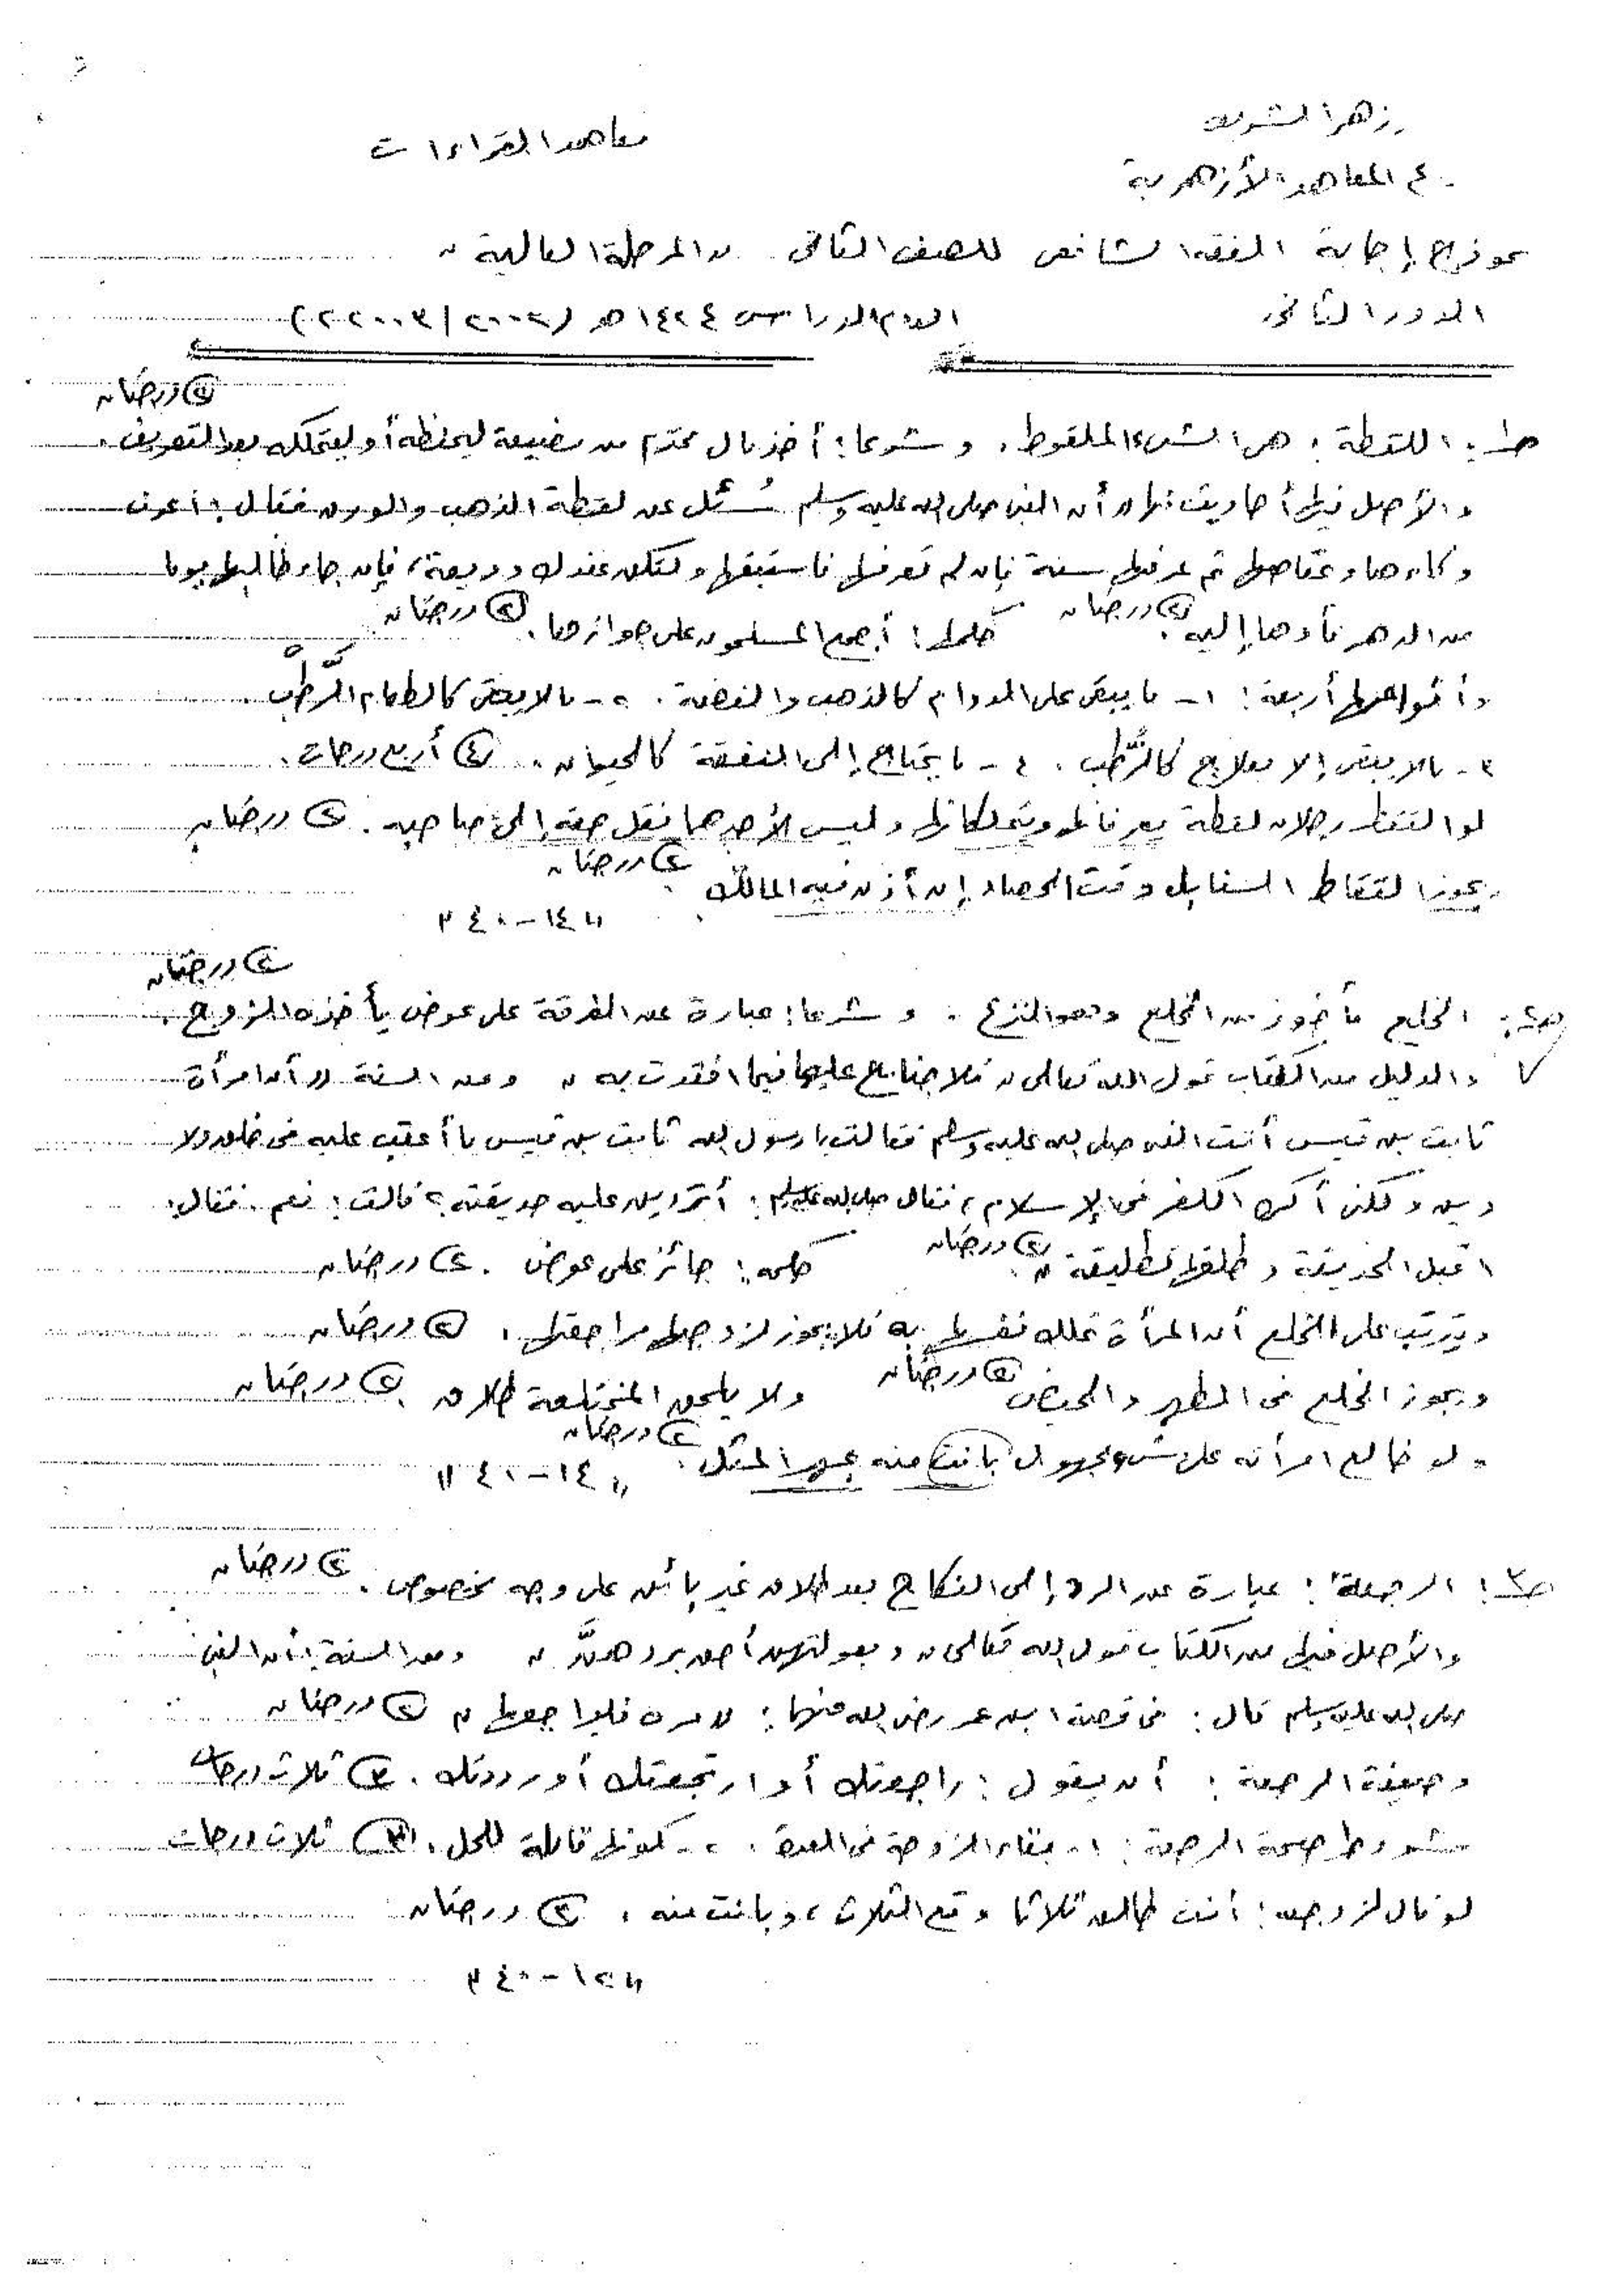 زهر الشريف
معاهد القراءات
ع المعاهد الأزهرية
نموذج إجابة الفقه الشافعى للصف الثانى " المرحلة العالية "
الدور الثانى
العام الدراسى ١٤٢٤ هـ (٢٠٠٢/٢٠٠٣)
(٢) درجتان
جـ١: اللقطة: هى الشىء الملقوط. وشرعا: أخذ مال محترم من مضيعة ليحفظه أو ليتملكه بعد التعريف.
والأصل فيها أحاديث منها " أن النبى صلى الله عليه وسلم سُئل عن لقطة الذهب والورق فقال: اعرف
وكاءها وعفاصها ثم عرفها سنة فإن لم تعرفها فاستنفقها ولتكن عندك وديعة، فإن جاء طالبها يوما
من الدهر فأدها إليه. (٢) درجتان حكمها: أجمع المسلمون على جوازها. (٢) درجتان
وأنواعها أربعة: ١- ما يبقى على الدوام كالذهب والفضة. ٢- ما لا يبقى كالطعام الرَّطْب.
٣- ما لا يبقى إلا بعلاج كالرُّطب. ٤- ما يحتاج إلى النفقة كالحيوان. (٤) أربع درجات.
لو التقط رجلان لقطة يعرفانها ويتملكانها وليس لأحدهما نقل حقه إلى صاحبه. (٢) درجتان
ويجوز التقاط السنابل وقت الحصاد إن أذن فيه المالك. (٢) درجتان
" ١٤ - ٤٠ "
(٢) درجتان
جـ٢: الخلع مأخوذ من الخلع وهو النزع. وشرعا: عبارة عن الفرقة على عوض يأخذه الزوج.
والدليل من الكتاب قول الله تعالى " فلا جناح عليهما فيما افتدت به " ومن السنة " أن امرأة
ثابت بن قيس أتت النبى صلى الله عليه وسلم فقالت يا رسول الله ثابت بن قيس ما أعتب عليه فى خلق ولا
دين ولكنى أكره الكفر فى الإسلام، فقال صلى الله عليه وسلم: أتردين عليه حديقته؟ قالت: نعم. فقال:
اقبل الحديقة وطلقها تطليقة ". (٢) درجتان حكمه: جائز على عوض. (٢) درجتان
ويترتب على الخلع أن المرأة تملك نفسها به فلا يجوز لزوجها مراجعتها. (٢) درجتان
ويجوز الخلع فى الطهر والحيض (٢) درجتان ولا يلحق المختلعة طلاق. (٢) درجتان
ولو خالع امرأته على شىء مجهول بانت منه بمهر المثل. (٢) درجتان
" ١٤ - ٤٠ "
جـ٣: الرجعة: عبارة عن الرد إلى النكاح بعد طلاق غير بائن على وجه مخصوص. (٢) درجتان
والأصل فيها من الكتاب قول الله تعالى " وبعولتهن أحق بردهنَّ " ومن السنة: أن النبى
صلى الله عليه وسلم قال: فى قصة ابن عمر رضى الله عنهما: " مره فليراجعها " (٢) درجتان
وصيغة الرجعة: أن يقول: راجعتك أو ارتجعتك أو رددتك. (٣) ثلاث درجات
شروط صحة الرجعة: ١- بقاء الزوجة فى العدة. ٢- كونها قابلة للحل. (٣) ثلاث درجات
لو قال لزوجته: أنت طالق ثلاثا وقع الثلاث، وبانت منه. (٢) درجتان
" ١٢ - ٤٠ "